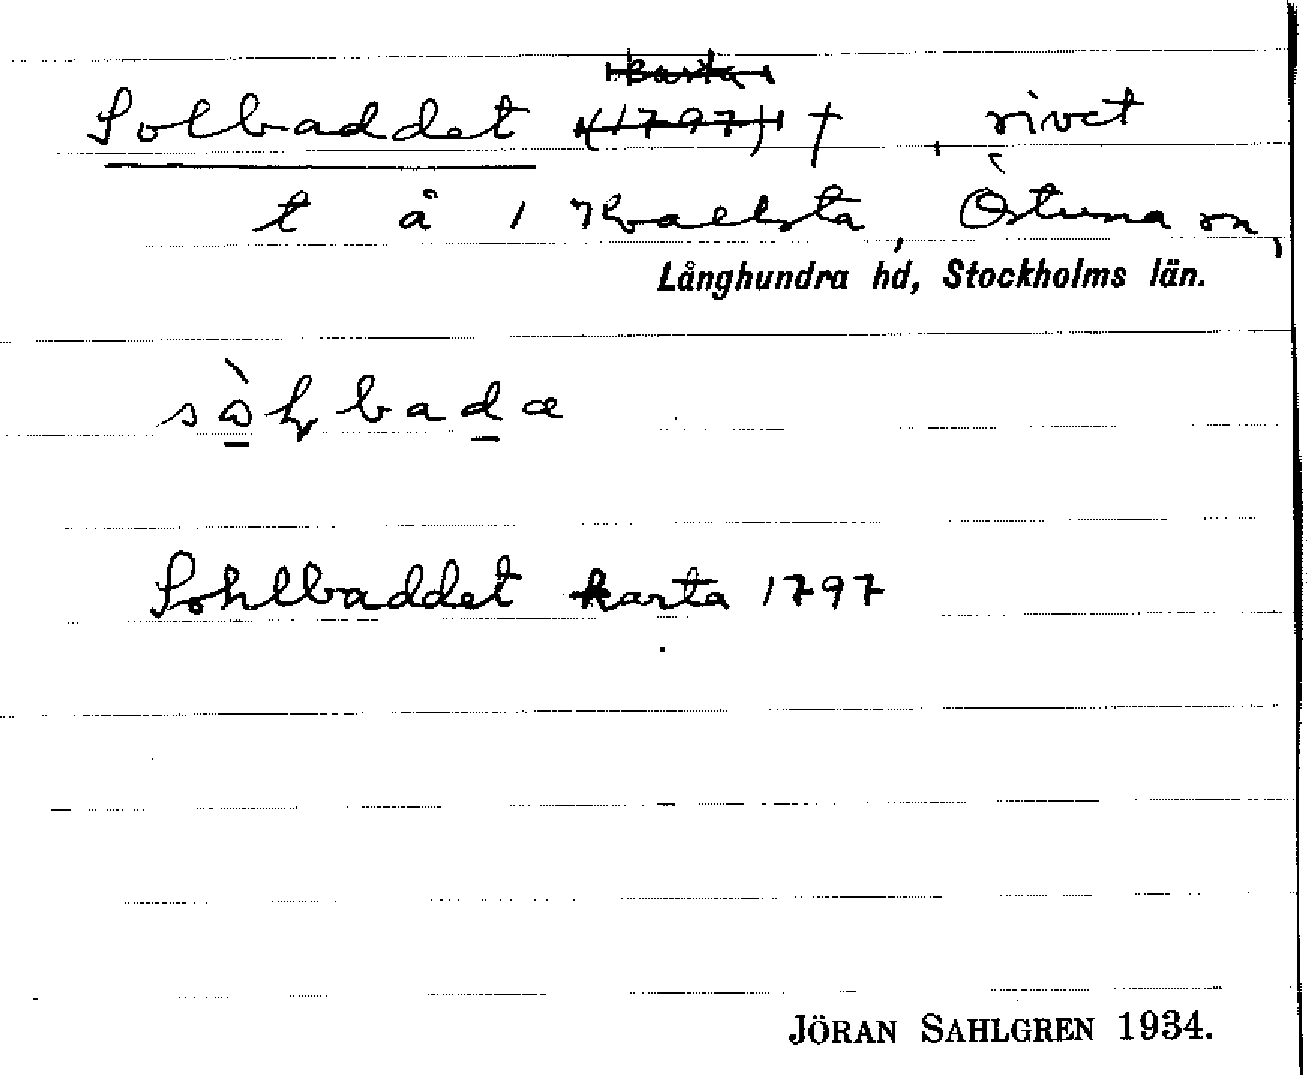 karta
Solbaddet (1797) † , rivet
t å 1 Kvallsta, Östuna sn,
Långhundra hd, Stockholms län.
Sohlbaddet karta 1797
JÖRAN SAHLGREN 1934.